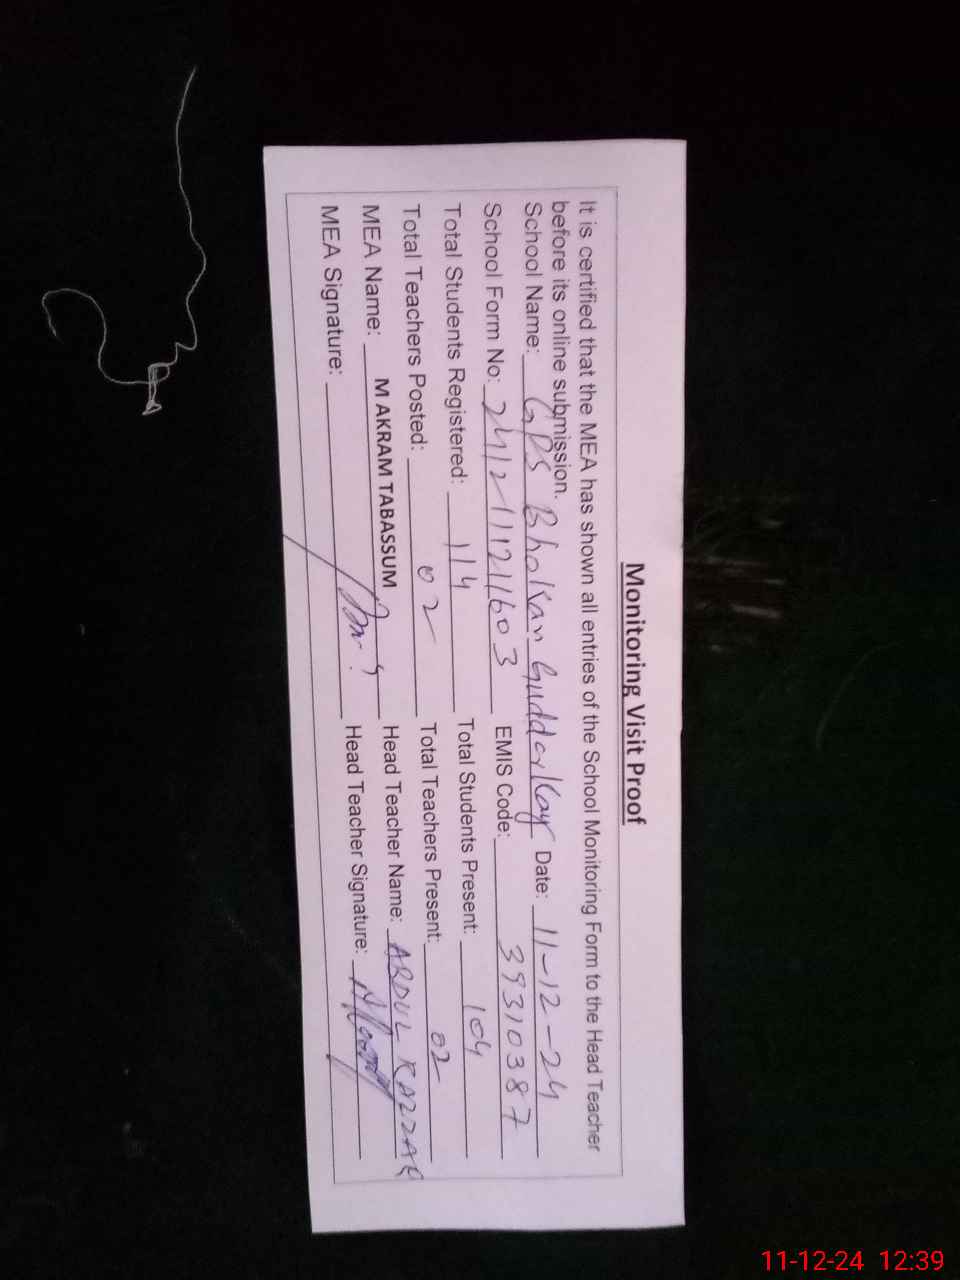 Monitoring Visit Proof
It is certified that the MEA has shown all entries of the School Monitoring Form to the Head Teacher
before its online submission.
School Name: GPS Bholkan Gudderkay Date: 11-12-24
School Form No: 2412-111211603 EMIS Code: 39310387
Total Students Registered: 114 Total Students Present: 104
Total Teachers Posted: 02 Total Teachers Present: 02
MEA Name: M AKRAM TABASSUM Head Teacher Name: ABDUL RAZZAQ
MEA Signature: Head Teacher Signature:
11-12-24 12:39